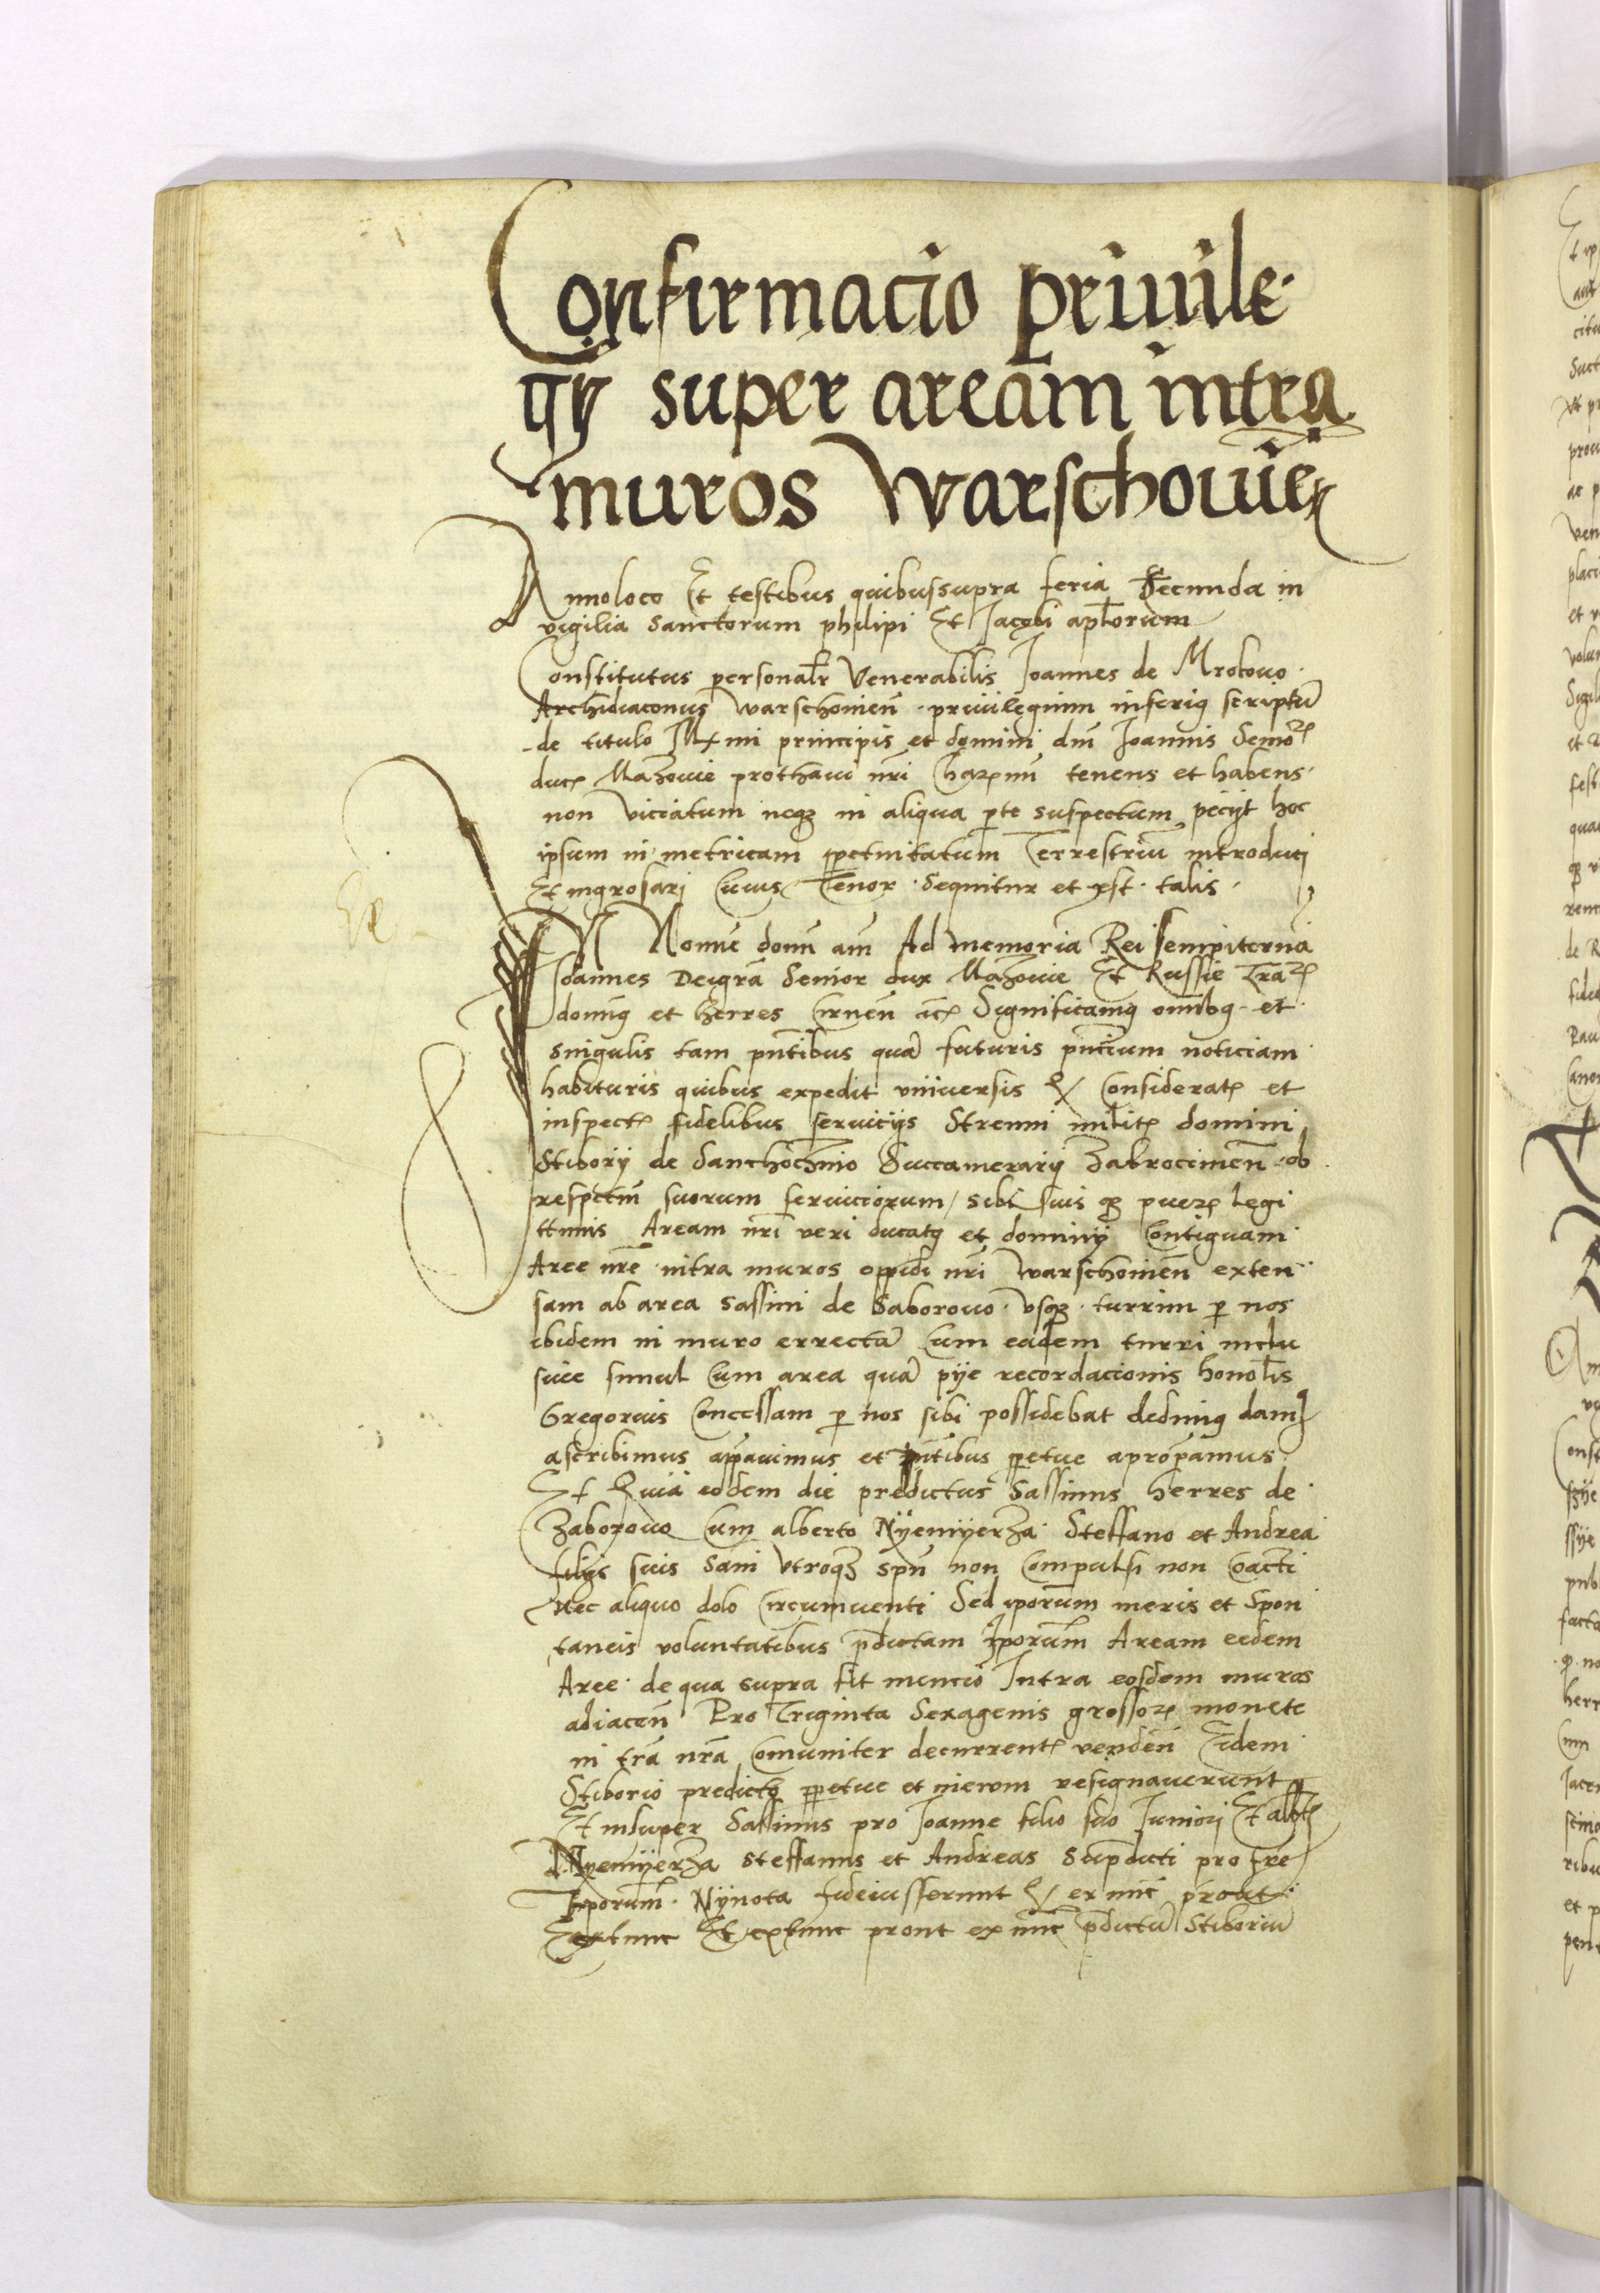 Confirmacio privile
gÿ super aream intra
muros Warschovie
Annoloco Et testibus quibussupra feria Secunda in
vigilia Sanctorum philipi Et Jacobi aplorum
Constitutus personalr Venerabilis Joannes de Mrokowo
Archidiaconus warschouien privilegium inferius scriptu
de titulo principis et domini dni Joannis Senior
duc Mazouie prothaui nri tenens et habens
non viciatum neqz in aliqua pte suspectum peciit hoc
ipsum in metricam ppetuitatum Terrestriu introduci
Et ingrosari Cuius Tenor Sequitur et est talis
In Nomine domni am Ad memoria Rei sempiterna
Joannes Deigra Senior dux Mazouie Et Russie
domnus et herres Cirnen Significamus omibus et
singulis tam pntibus qua futuris pncium noticiam
habituris quibus expedit vniuersis Considerat et
inspect fidelibus seruiciis Strenui militis domini
Stiborii de Sanchoczino Succamerarii Zakrocimen ob
respectum suorum seruiciorum sibi suis qz puer legi
ttimis Aream nri veri ducatus et dominii Contiguam
Aree nre intra muros oppidi nri warschouien exten
sam ab area Sassini de Saborowo vsqz turrim p nos
ibidem in muro errecta Cum eadem turri inclu
siue simul Cum area qua pye recordacionis honolis
Gregorius Concessam p nos sibi possidebat dedimus dam
ascribimus appauimus et pntibus ppetue apropamus
Et Quia eodem die predictus Sassinus herres de
Zaborowo Cum alberto Nÿemÿerza Steffano et Andrea
filiis suis Sani vtroqz spu non Compulsi non Coacti
Nec aliquo dolo Circumuenti Sed iporum meris et Spon
taneis voluntatibus pdictam Iporum Aream eedem
Aree de qua supra fit mencio Intra eosdem muros
adiacen Pro Triginta Sexagenis grossor monete
in tra nra Comuniter decurrent venden Eidem
Stiborio predicto ppetue et in ewm resignauerunt
Et insuper Sassinus pro Joanne filio suo Juniori Et albt
Nyemÿerza Steffanus et Andreas Supdicti pro fre
Iporum Nÿnota fideiusserunt ex nunc prout
Extunc Et extunc prout ex nunc pdictu Stiboriu